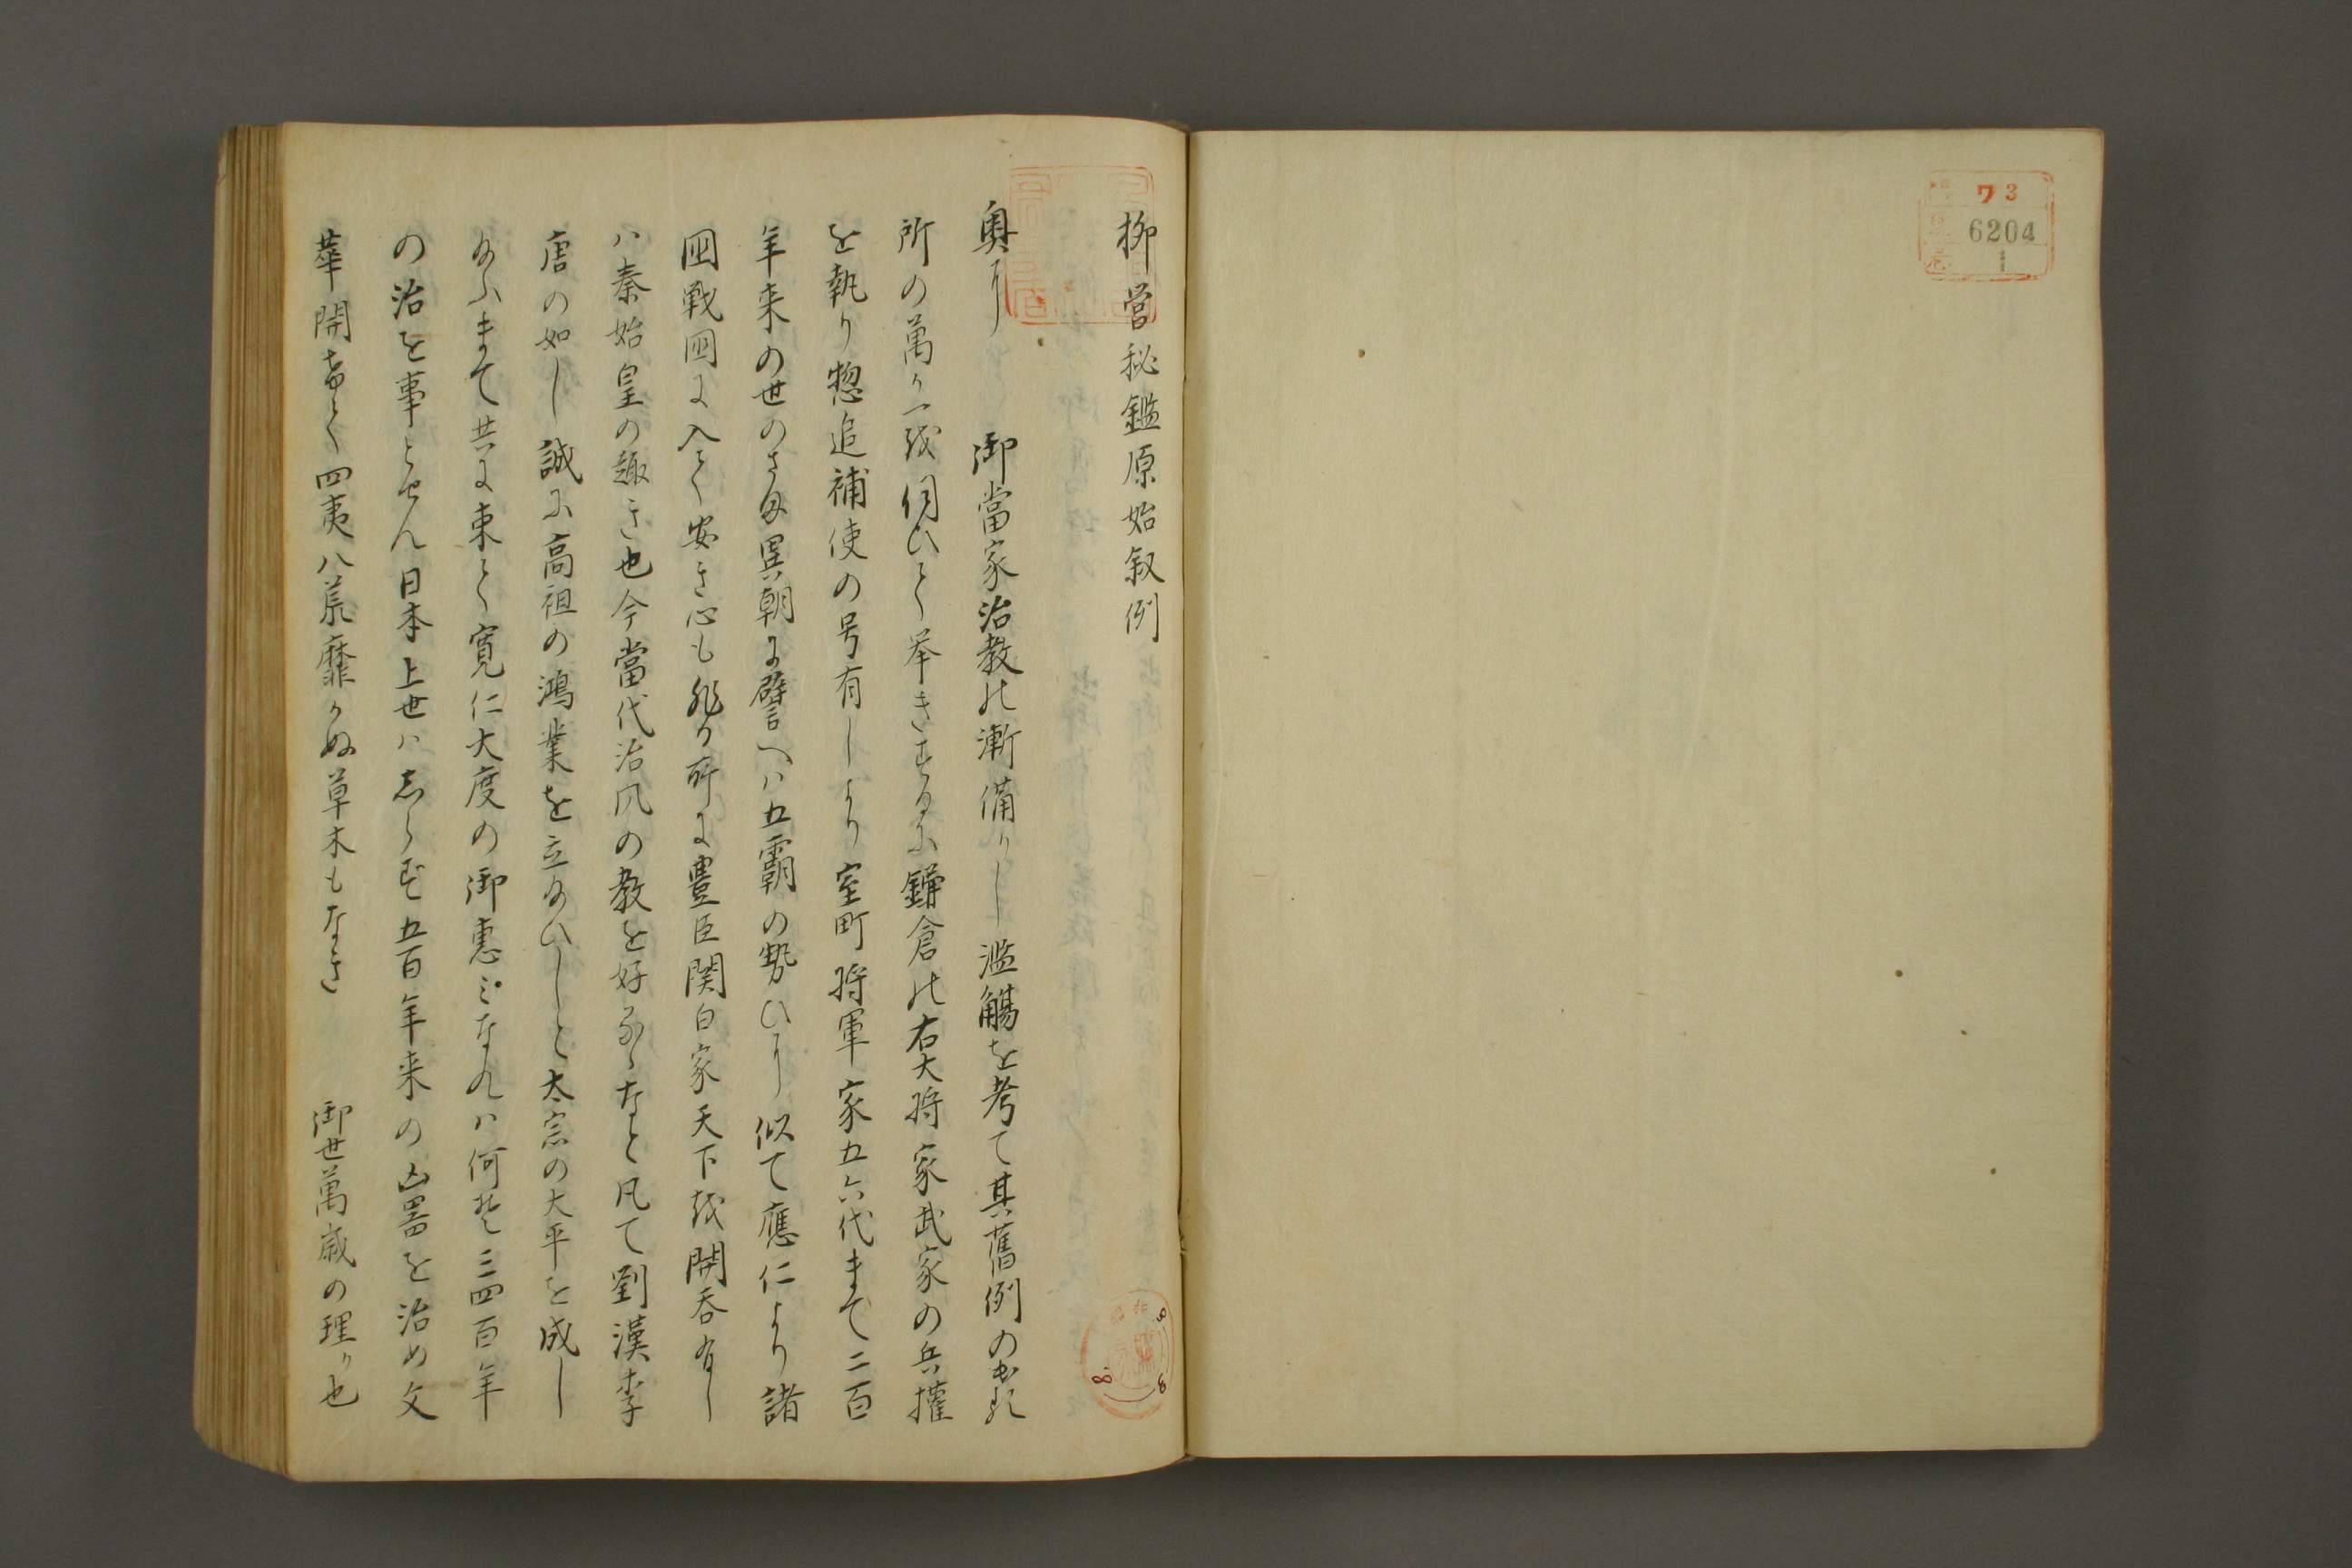 ワ3
6204
1
柳営秘鑑原始叙例
奥に 御當家治教の漸備りし濫觴を考て其舊例の出る
所の萬か一を伺ひて挙きするに鎌倉の右大将家武家の兵權
を執り惣追補使の号有しより室町将軍家五六代まて二百
年来の世のさま異朝に譬へハ五霸の勢ひに似て應仁より諸
國戦國に入て安き心も非る所に豊臣関白家天下を開呑有し
ハ秦始皇の趣き也今當代治風の教を好るゝなと凡て劉漢李
唐の如し誠に高祖の鴻業を立給ひしと太宗の大平を成し
給ふまて共に東て寛仁大度の御惠ミなれハ何そ三四百年
の治を事とせん日本上世ハしらす五百年来の凶器を治め文
華開けて四夷八荒靡かぬ草木もなき 御世萬歳の理り也